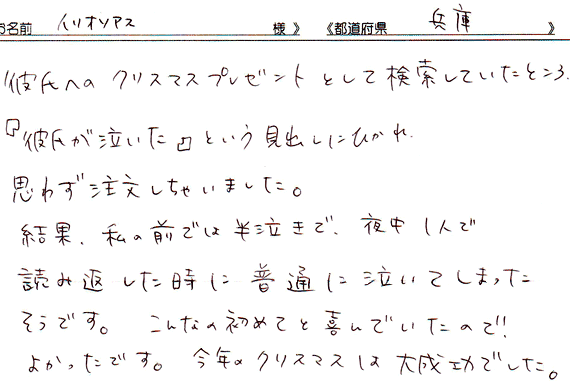 お名前 イリオソアス 様》 《都道府県 兵庫 》
彼氏へのクリスマスプレゼントとして検索していたところ、
『彼氏が泣いた』という見出しにひかれ、
思わず注文しちゃいました。
結果、私の前では半泣きで、夜中1人で
読み返した時に普通に泣いてしまった
そうです。 こんなの初めてと喜んでいたので!
よかったです。 今年のクリスマスは大成功でした。